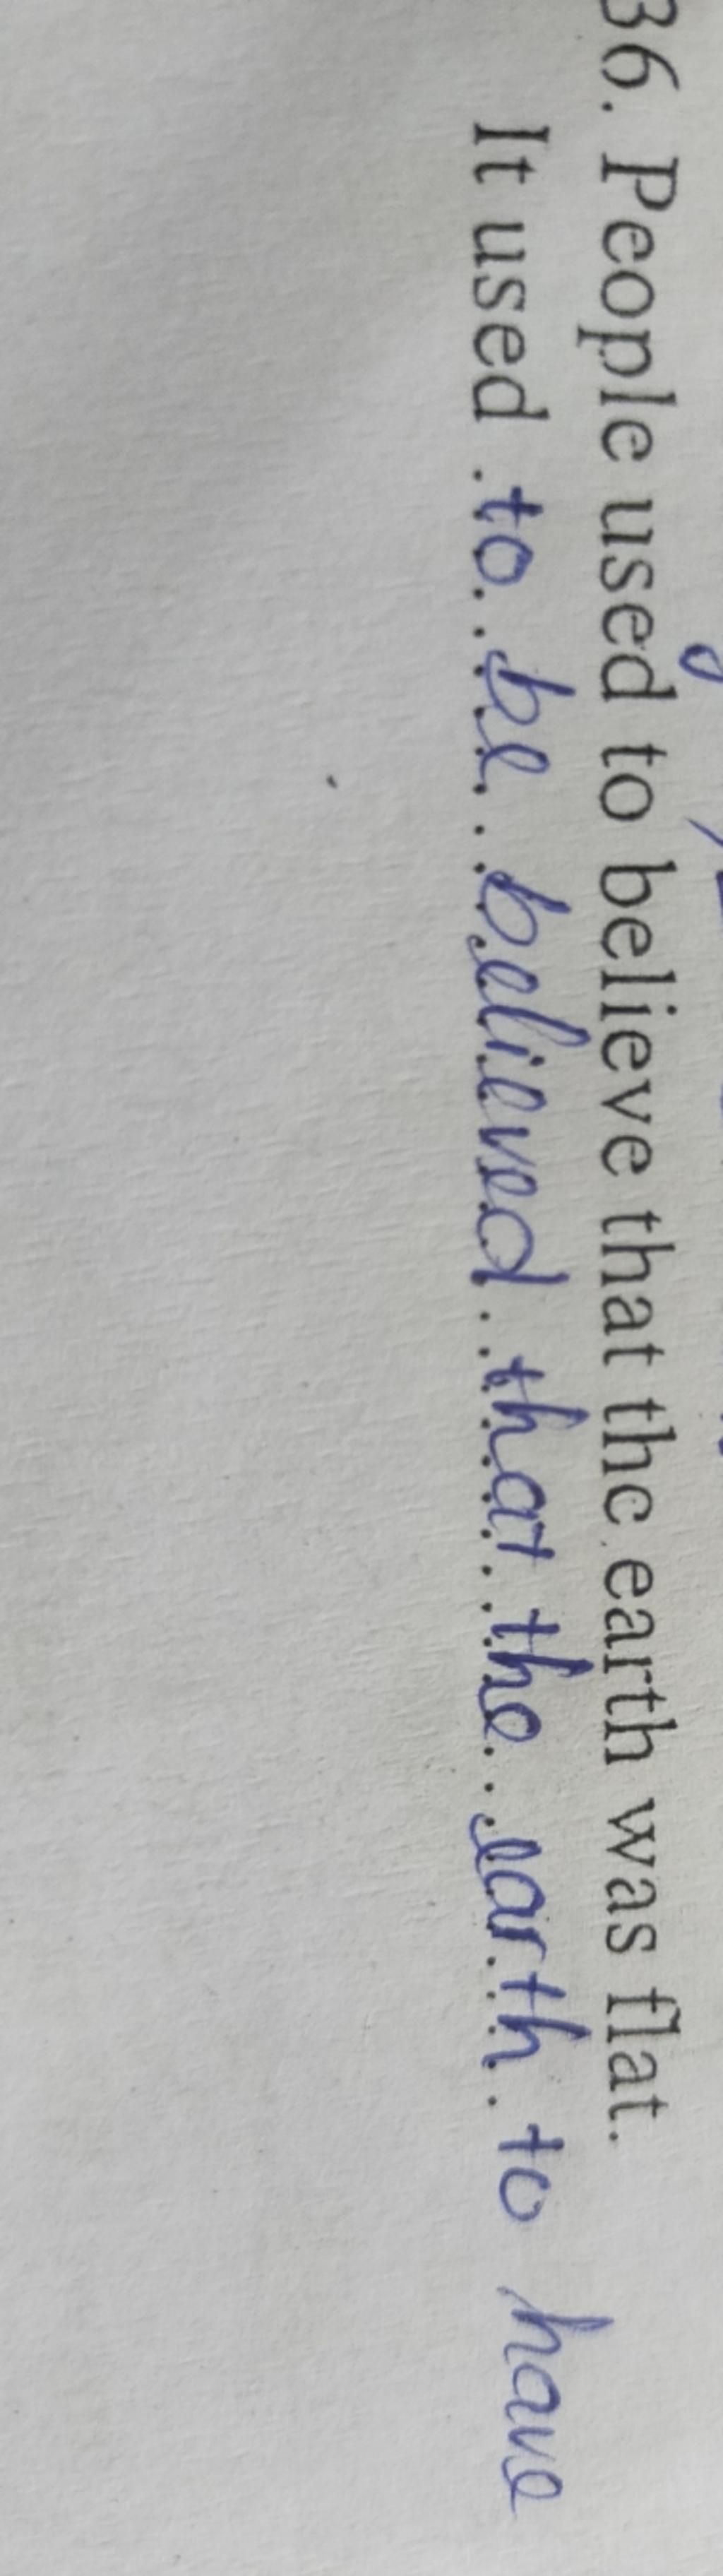 36. People used to believe that the earth was flat.
It used to be believed that the earth to have